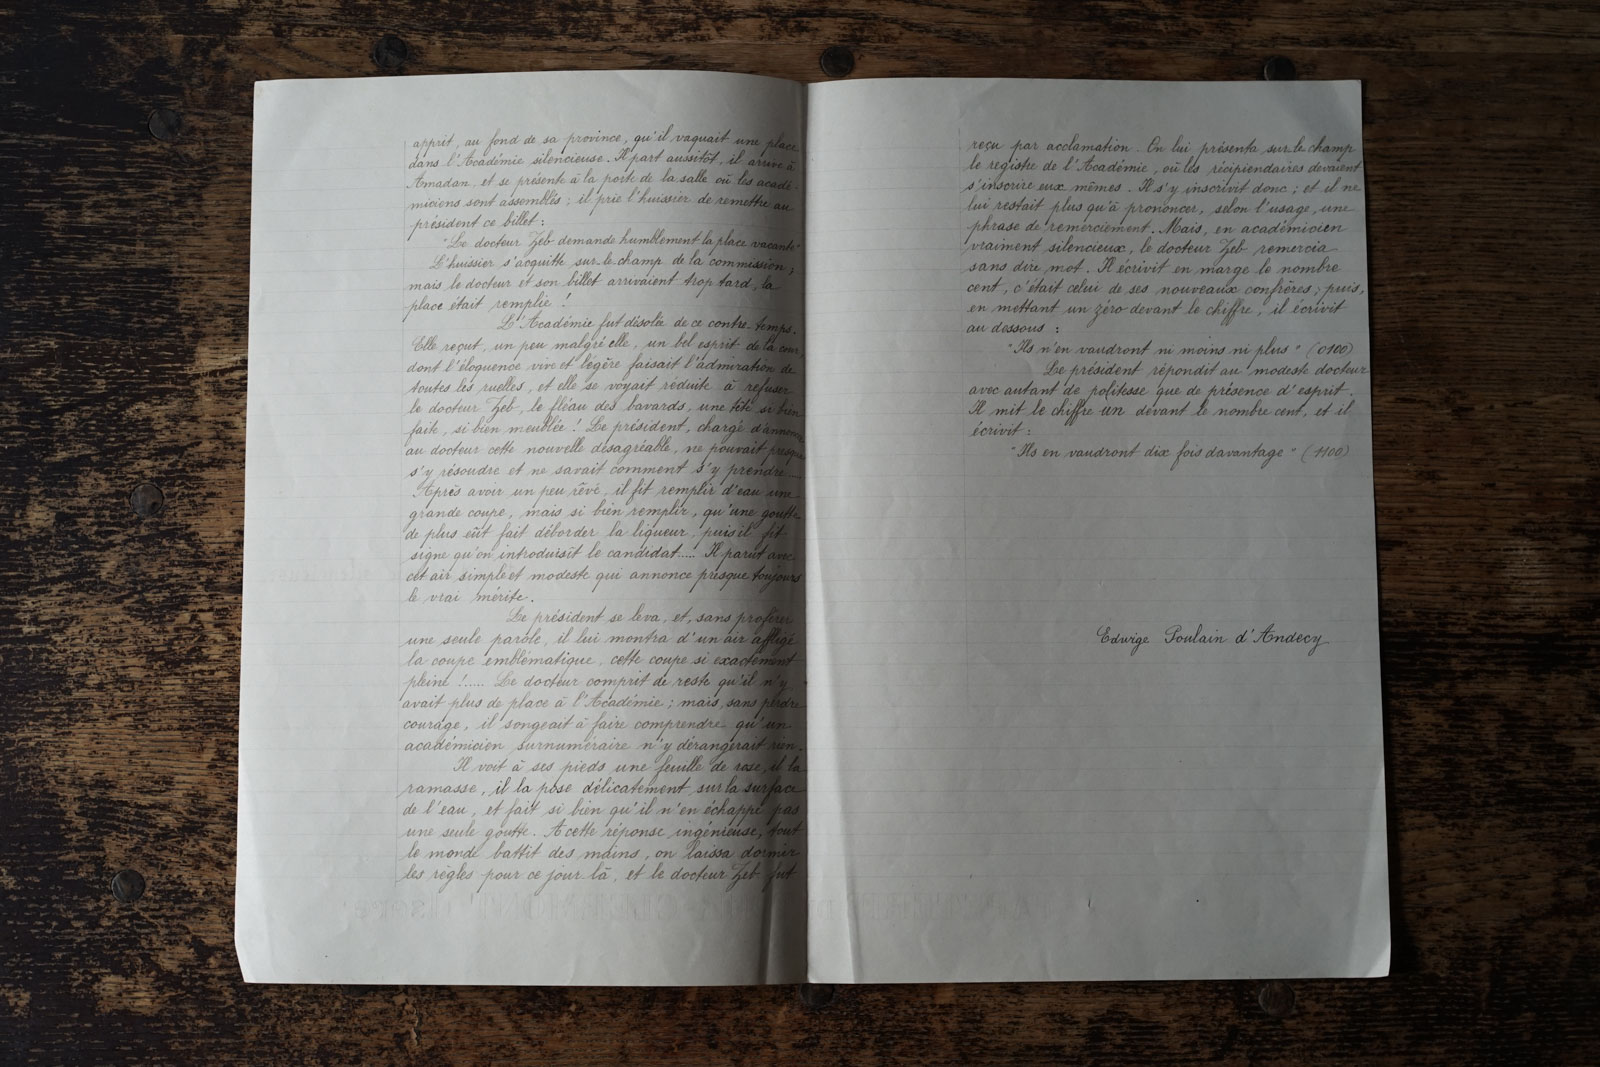 apprit, au fond de sa province, qu'il vaquait une place
dans l'Académie silencieuse. Il part aussitôt, il arrive à
Amadan, et se présente à la porte de la salle où les acadé-
miciens sont assemblés ; il prie l'huissier de remettre au
président ce billet :
"Le docteur Zeb demande humblement la place vacante"
L'huissier s'acquitte sur-le champ de la commission ;
mais le docteur et son billet arrivaient trop tard, la
place était remplie !
L'Académie fut désolée de ce contre-temps.
Elle reçut, un peu malgré elle, un bel esprit de la cour,
dont l'éloquence vive et légère faisait l'admiration de
toutes les ruelles, et elle se voyait réduite à refuser
le docteur Zeb, le fléau des bavards, une tête si bien
faite, si bien meublée ! Le président, chargé d'annoncer
au docteur cette nouvelle désagréable, ne pouvait presque
s'y résoudre et ne savait comment s'y prendre....
Après avoir un peu rêvé, il fit remplir d'eau une
grande coupe, mais si bien remplir, qu'une goutte
de plus eût fait déborder la liqueur, puis il fit
signe qu'on introduisît le candidat..... Il parut avec
cet air simple et modeste qui annonce presque toujours
le vrai mérite.
Le président se leva, et, sans proférer
une seule parole, il lui montra d'un air affligé
la coupe emblématique, cette coupe si exactement
pleine !..... Le docteur comprit de reste qu'il n'y
avait plus de place à l'Académie ; mais, sans perdre
courage, il songeait à faire comprendre qu'un
académicien surnuméraire n'y dérangerait rien.
Il voit à ses pieds une feuille de rose, il la
ramasse, il la pose délicatement sur la surface
de l'eau, et fait si bien qu'il n'en échappe pas
une seule goutte. A cette réponse ingénieuse, tout
le monde battit des mains, on laissa dormir
les règles pour ce jour-là, et le docteur Zeb fut
reçu par acclamation. On lui présenta sur-le champ
le registre de l'Académie, où les récipiendaires devaient
s'inscrire eux mêmes. Il s'y inscrivit donc ; et il ne
lui restait plus qu'à prononcer, selon l'usage, une
phrase de remerciement. Mais, en académicien
vraiment silencieux, le docteur Zeb remercia
sans dire mot. Il écrivit en marge le nombre
cent, c'était celui de ses nouveaux confrères ; puis,
en mettant un zéro devant le chiffre, il écrivit
au dessous :
"Ils n'en vaudront ni moins ni plus" (0100)
Le président répondit au modeste docteur
avec autant de politesse que de présence d'esprit.
Il mit le chiffre un devant le nombre cent, et il
écrivit :
"Ils en vaudront dix fois davantage" (1100)
Edwige Poulain d'Andecy